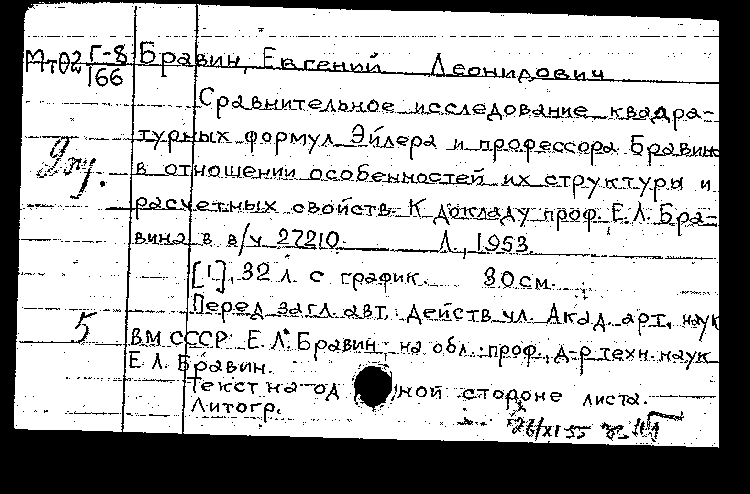 МтФ2 Г-8/166 Бравин, Евгений Леонидович
Сравнительное исследование квадра-
турных формул Эйлера и профессора Бравина
в отношении особенностей их структуры и
расчетных свойств. К докладу проф. Е.Л. Бра-
вина в в/ч 27210. Л., 1953.
[1], 32 л. с график. 30 см.
Перед загл. авт.: действ. чл. Акад. арт. наук
5
ВМ СССР Е.Л. Бравин, на обл.: проф., д-р техн. наук
Е.Л. Бравин.
Текст на одной стороне листа.
Литогр.
26/XI-55